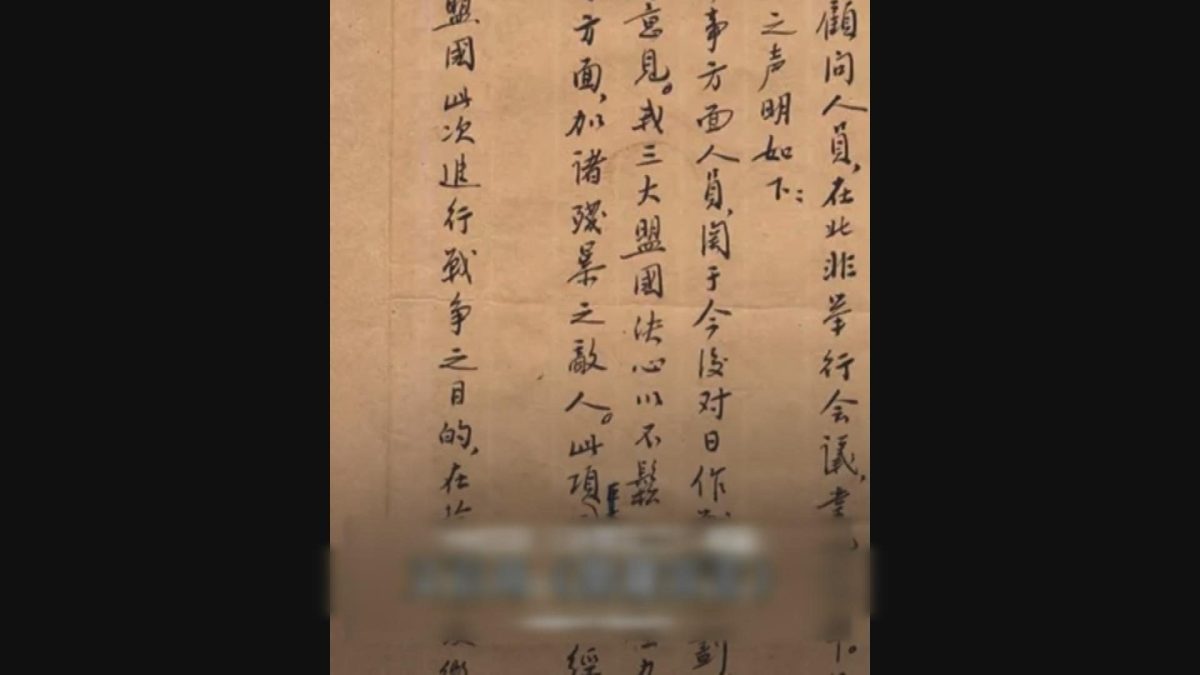 顧问人員,在北非举行会议,
之声明如下:
事方面人員,関于今後对日作
意見。我三大盟國决心以不鬆
方面,加諸殘暴之敵人。此項
經
盟國此次進行戰争之目的,在